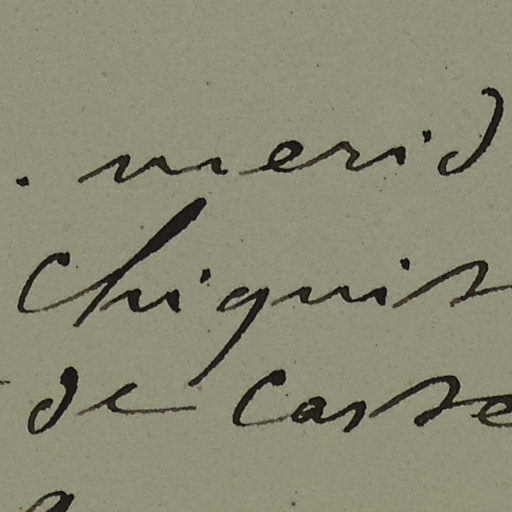 . merid
Chiquit
de Caste